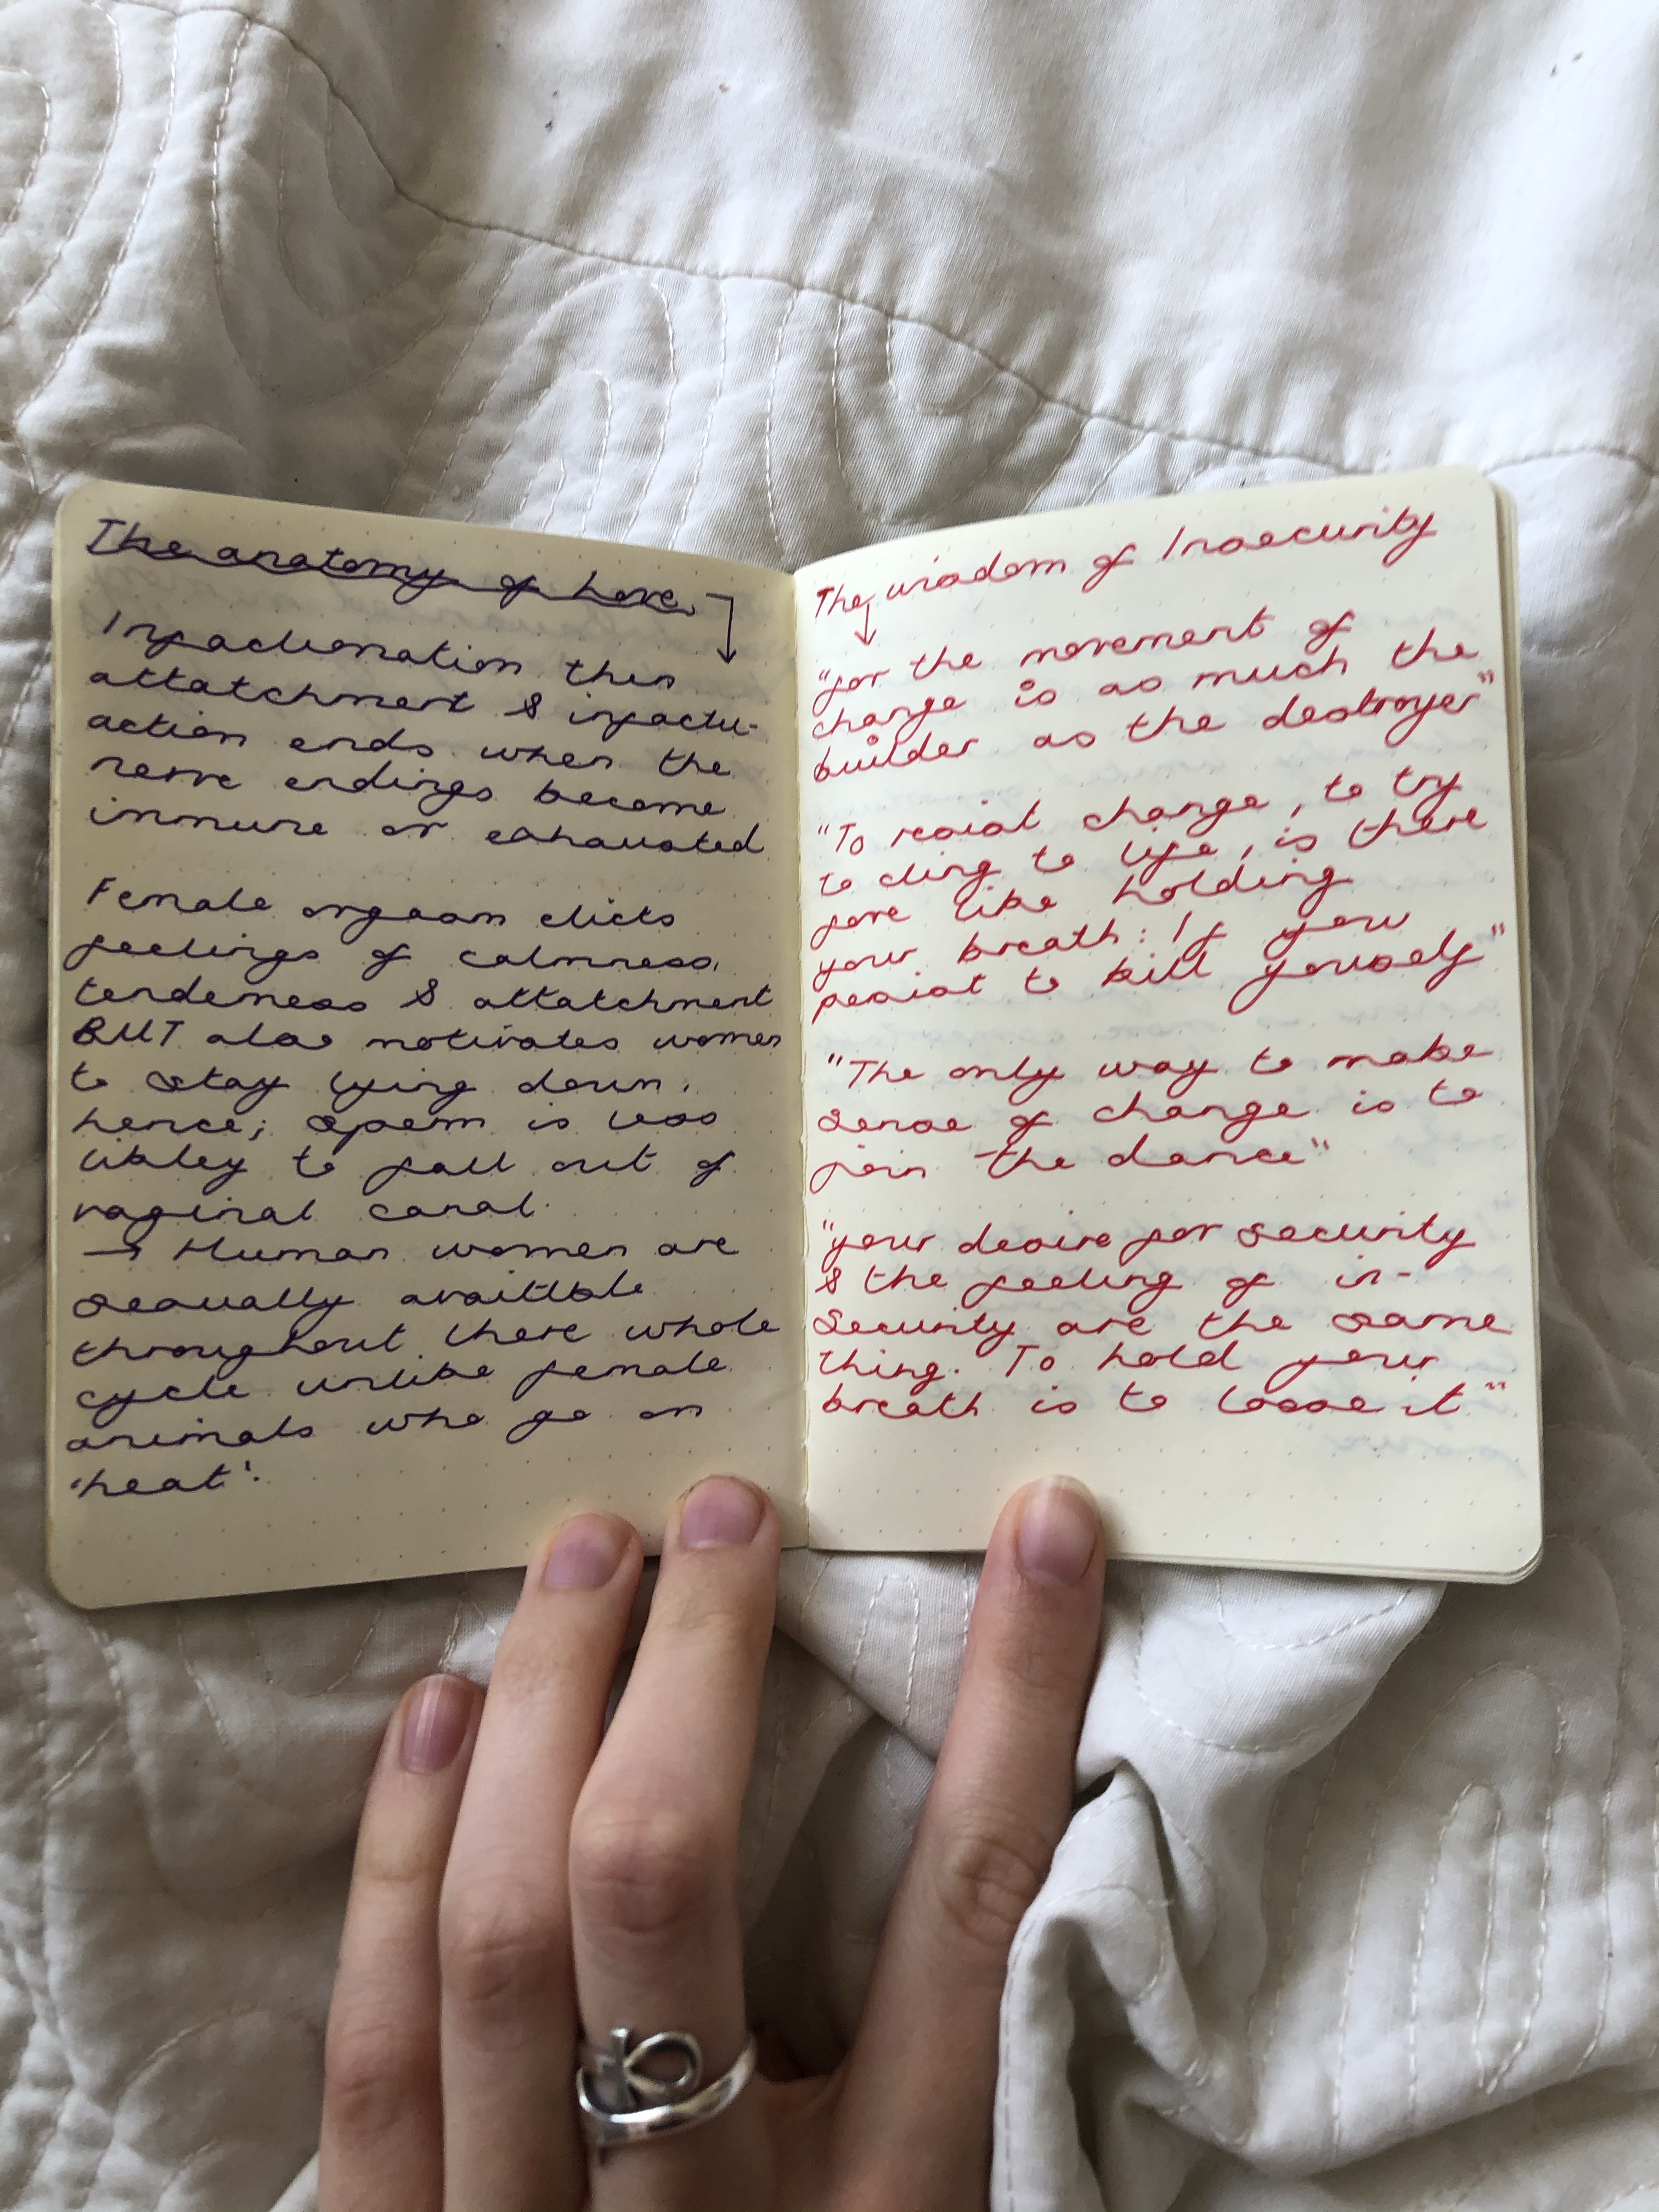 The anatomy of Love
Infactionation then
attatchment & infactu-
action ends when the
nerve endings become
immune or exhausted
Female orgasm elicts
feelings of calmness,
tenderness & attatchment
BUT also motivates women
to stay lying down,
hence; sperm is less
likley to fall out of
vaginal canal.
→ Human women are
sexually availible
throughout there whole
cycle unlike female
animals who go on
'heat'.
The wisdom of Insecurity
"for the movement of
change is as much the
builder as the destroyer"
"To resist change, to try
to cling to life, is there
fore like holding
your breath: If you
persist to kill yourself"
"The only way to make
sense of change is to
join the dance"
"your desire for security
& the feeling of in-
security are the same
thing. To hold your
breath is to loose it"